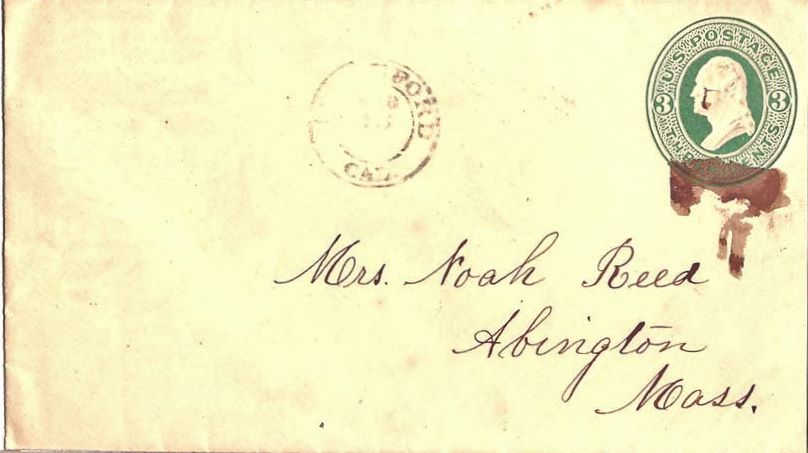 U.S. POSTAGE
3 3
THREE CENTS
CAL
Mrs. Noah Reed
Abington
Mass.